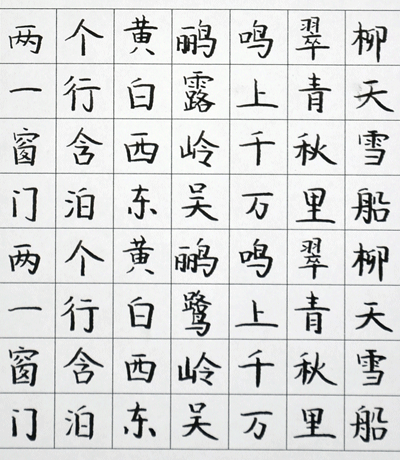 两个黄鹂鸣翠柳
一行白露上青天
窗含西岭千秋雪
门泊东吴万里船
两个黄鹂鸣翠柳
一行白鹭上青天
窗含西岭千秋雪
门泊东吴万里船